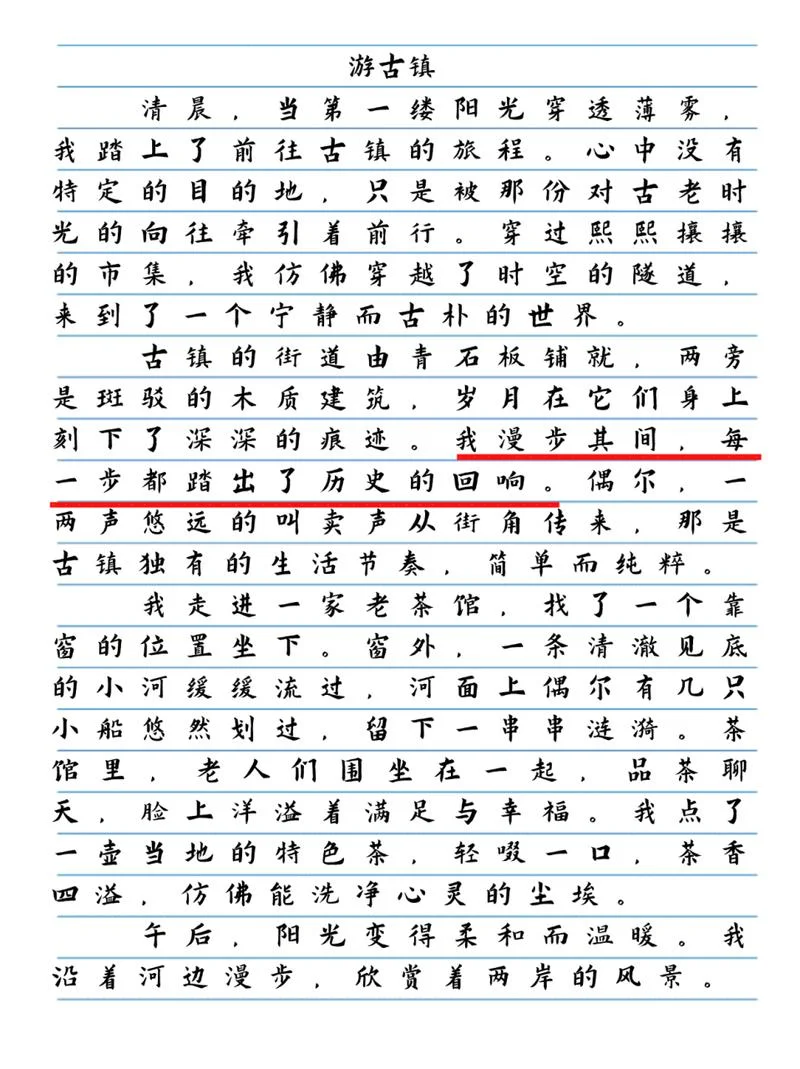 游古镇
清晨，当第一缕阳光穿透薄雾，
我踏上了前往古镇的旅程。心中没有
特定的目的地，只是被那份对古老时
光的向往牵引着前行。穿过熙熙攘攘
的市集，我仿佛穿越了时空的隧道，
来到了一个宁静而古朴的世界。
古镇的街道由青石板铺就，两旁
是斑驳的木质建筑，岁月在它们身上
刻下了深深的痕迹。我漫步其间，每
一步都踏出了历史的回响。偶尔，一
两声悠远的叫卖声从街角传来，那是
古镇独有的生活节奏，简单而纯粹。
我走进一家老茶馆，找了一个靠
窗的位置坐下。窗外，一条清澈见底
的小河缓缓流过，河面上偶尔有几只
小船悠然划过，留下一串串涟漪。茶
馆里，老人们围坐在一起，品茶聊
天，脸上洋溢着满足与幸福。我点了
一壶当地的特色茶，轻啜一口，茶香
四溢，仿佛能洗净心灵的尘埃。
午后，阳光变得柔和而温暖。我
沿着河边漫步，欣赏着两岸的风景。